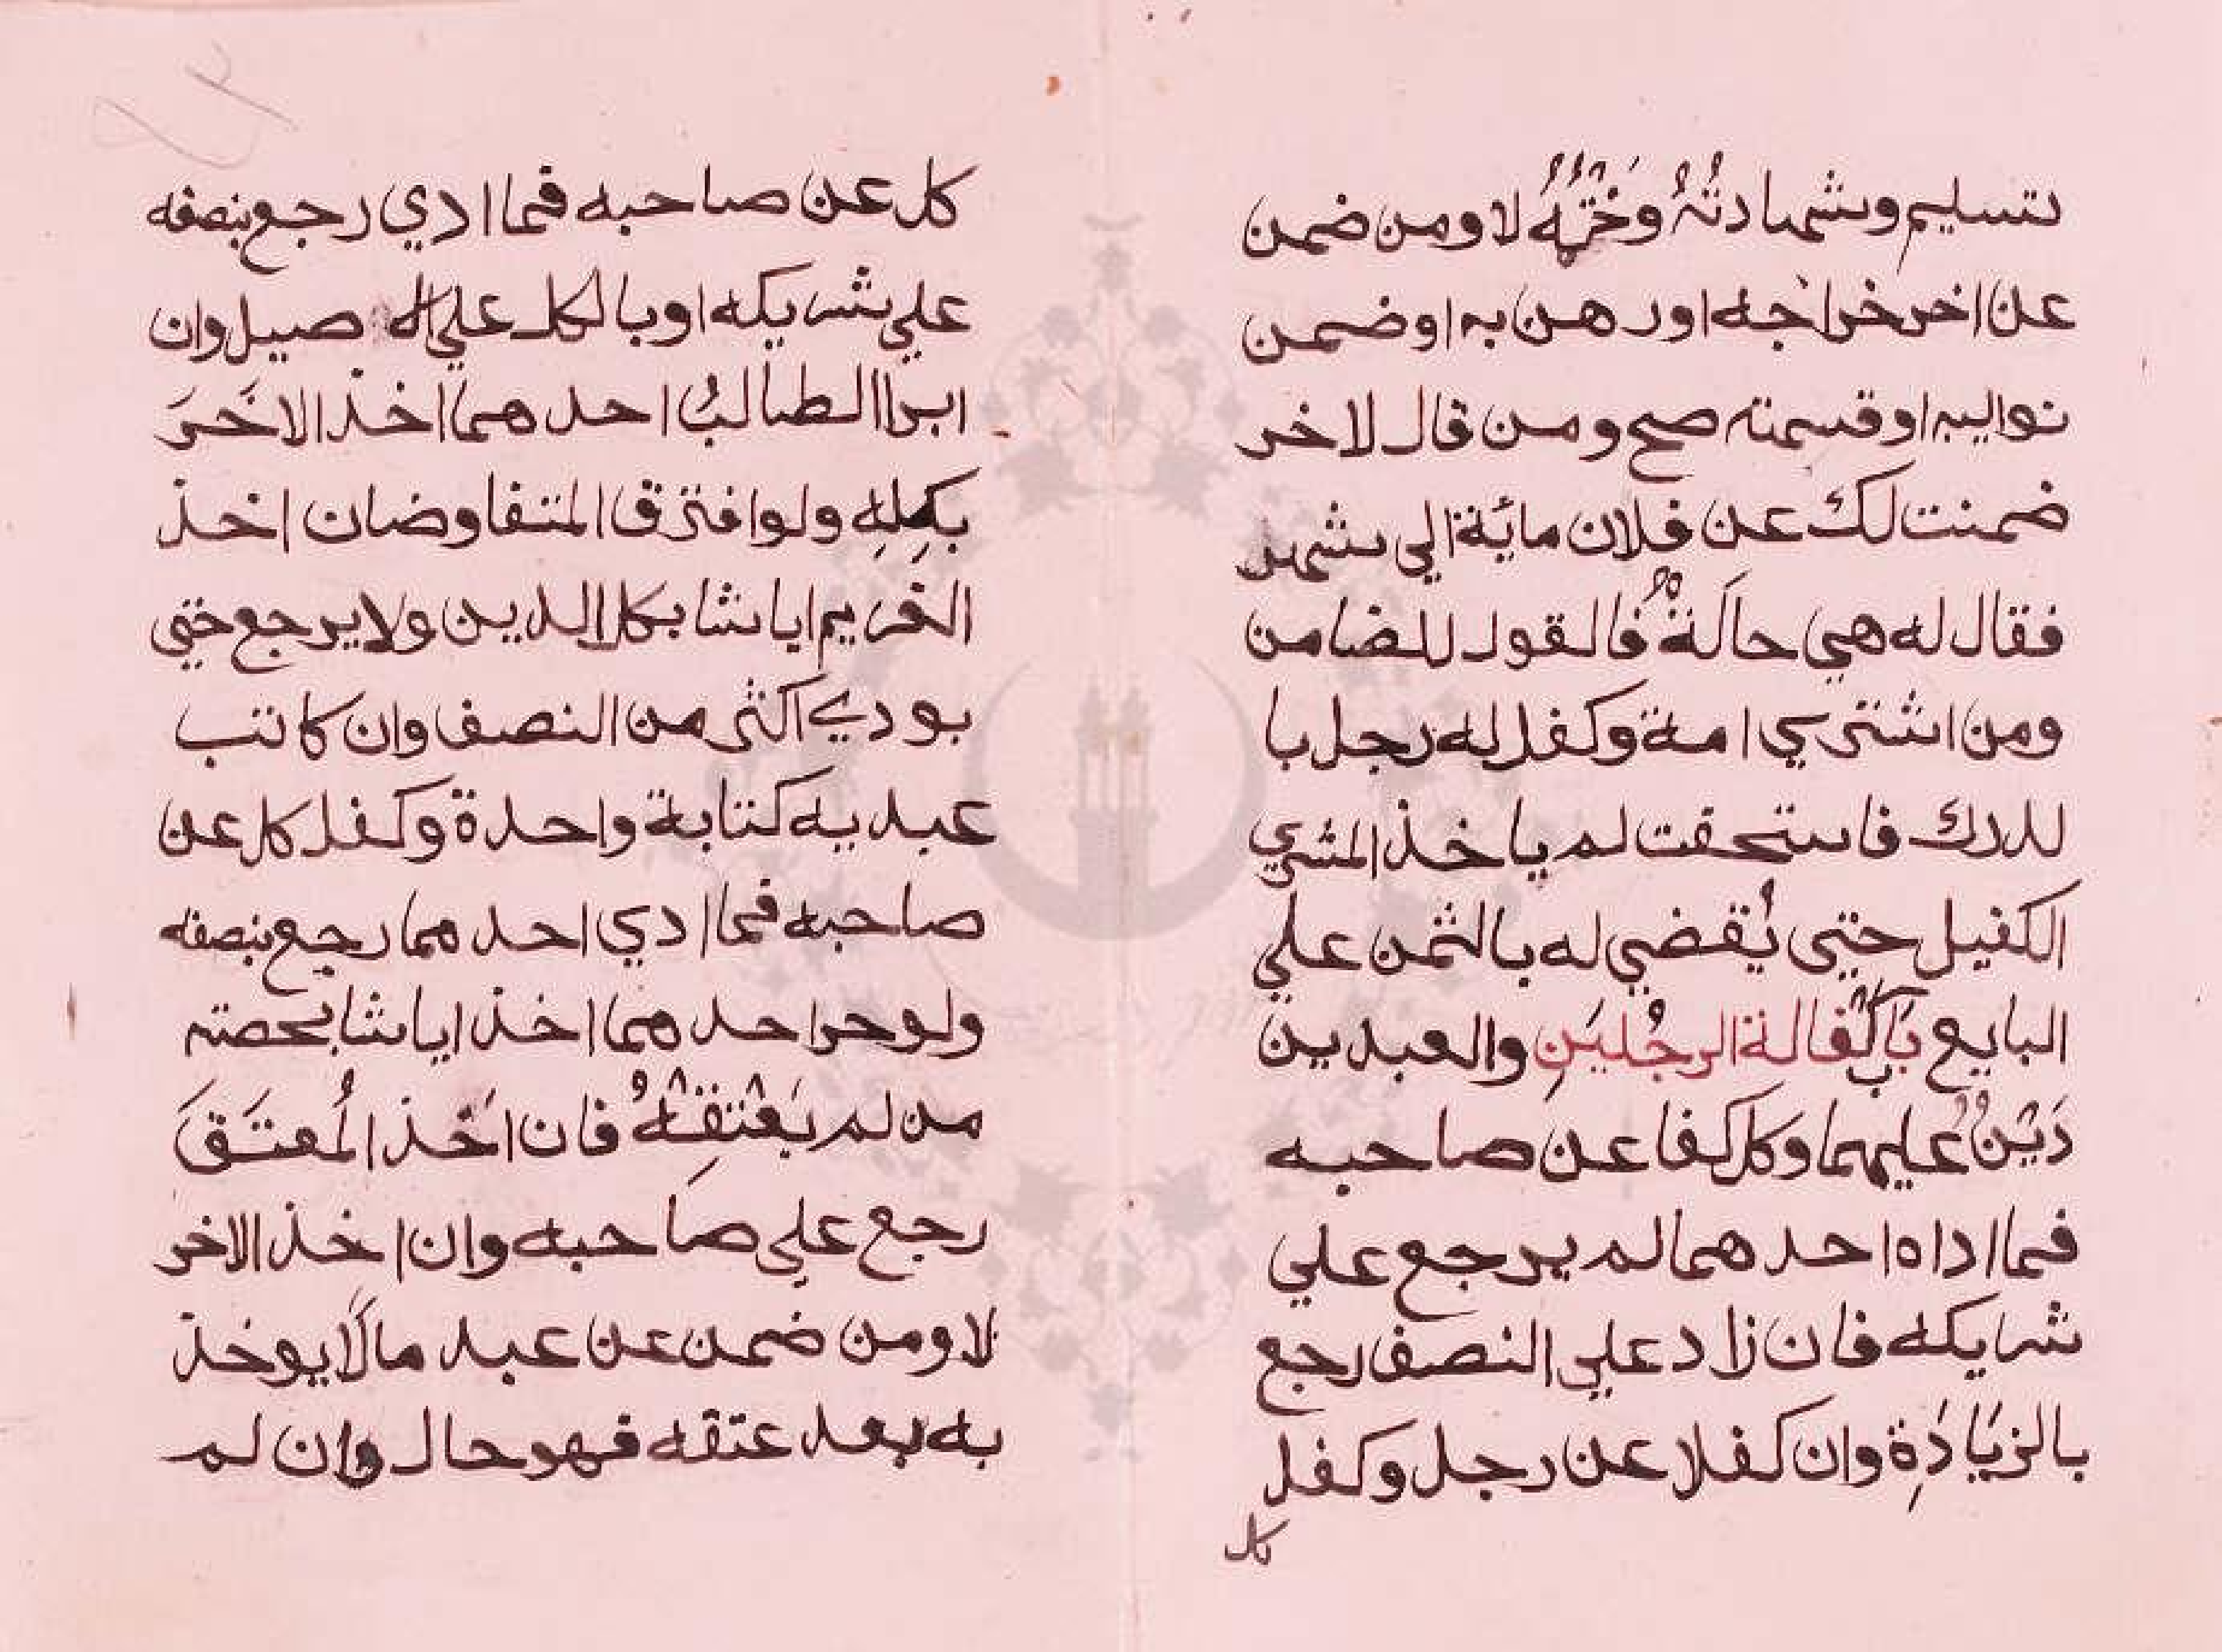 تسليم وشهادتُهُ وخَتْمُهُ لا ومن ضمن
عن اخر خراجه او رهن به او ضمن
نوايبه او قسمته صح ومن قال لاخر
ضمنت لك عن فلان ماية الي شهر
فقال له هي حالَةٌ فالقول للضامن
ومن اشتري امة وكفل له رجل با
لدرك فاستحقت لم ياخذ المشتري
الكفيل حتي يُقضي له بالثمن علي
البايع بَابُ كفالة الرجُليَنِ والعبدين
دَيْنٌ عليهما وكل كفل عن صاحبه
فما اداه احدهما لم يرجع علي
شريكه فان زاد علي النصف رجع
بالزيَادَةِ وان كفلا عن رجل وكفل
كل
كل عن صاحبه فما ادي رجع بنصفه
علي شريكه او بالكل علي الاصيل وان
ابرا الطالبُ احدهما اخذ الاخَرَ
بكلِهِ ولو افترق المتفاوضان اخذ
الغريم ايا شا بكل الدين ولا يرجع حتي
يودي اكثر من النصف وان كاتب
عبديه كتابة واحدة وكفل كل عن
صاحبه فما ادي احدهما رجع بنصفه
ولو حرر احدهما اخذ ايا شا بحصته
من لم يَعْتِقْهُ فان اَخَذ المُعتَقَ
رجع علي صاحبه وان اخذ الاخر
لا ومن ضمن عن عبد مالا يوخذ
به بعد عتقه فهو حال وان لم